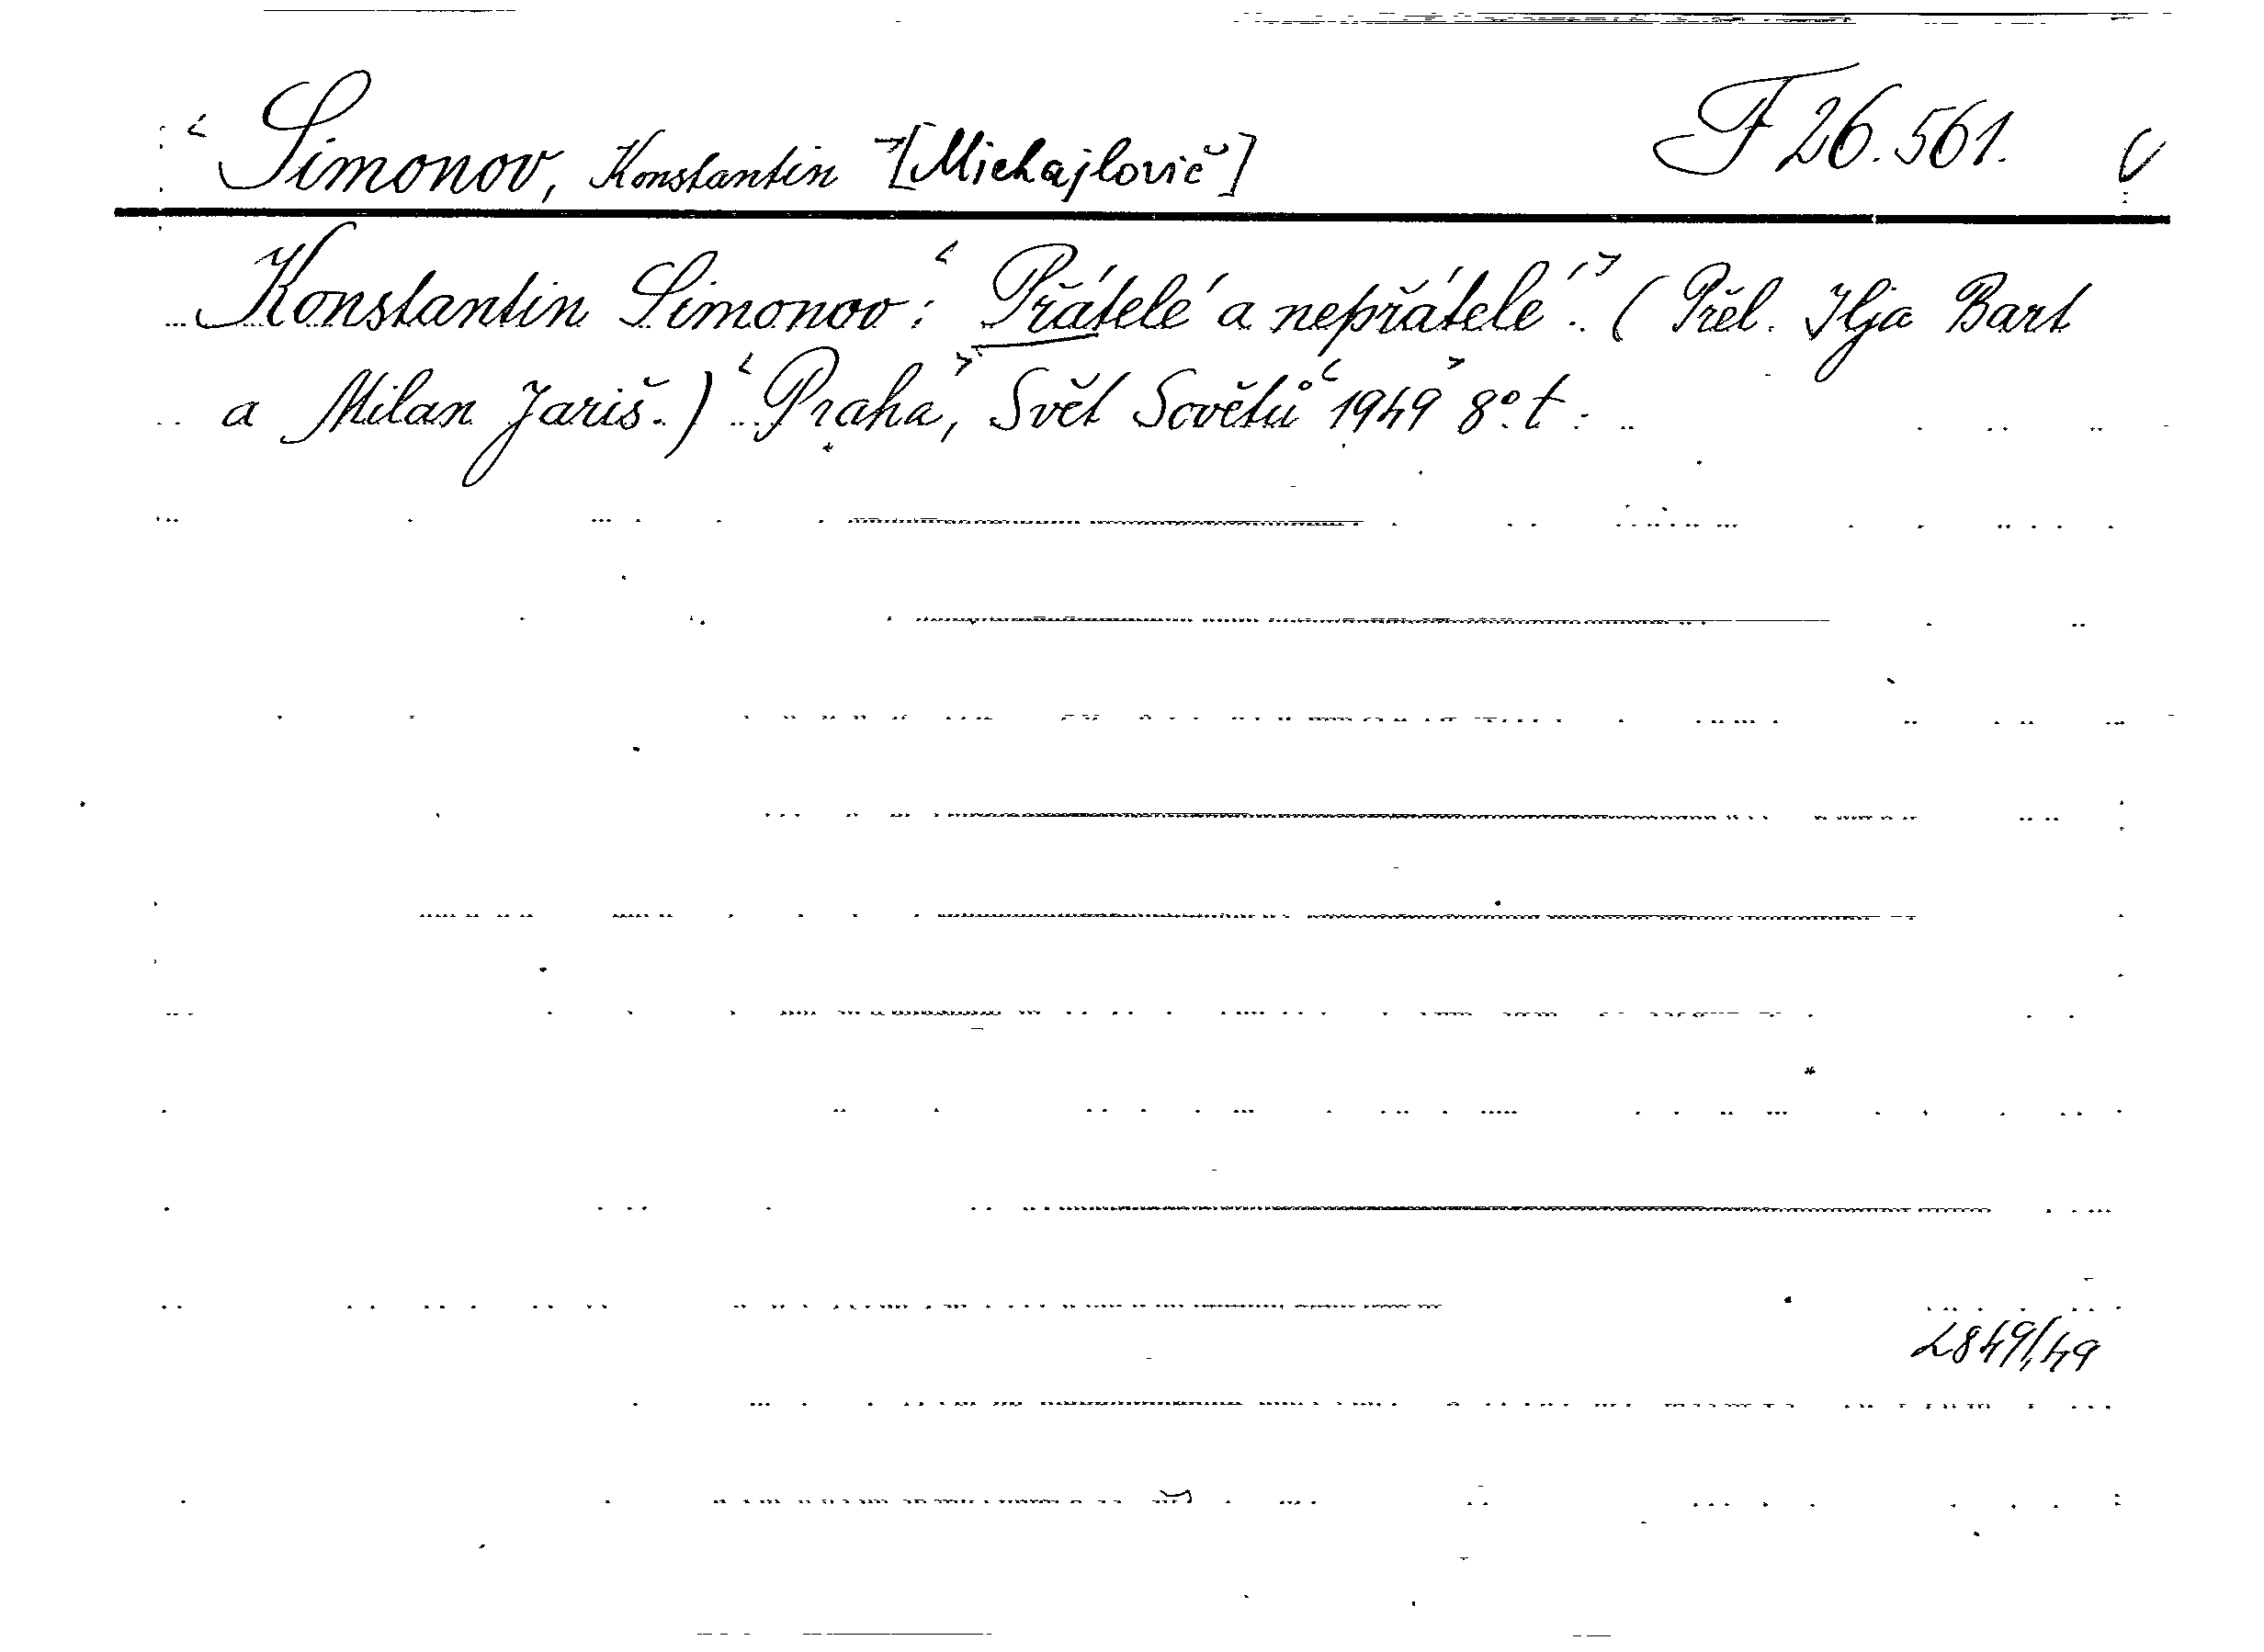 Simonov, Konstantin [Michajlovič] F 26.561.
Konstantin Simonov: Přátelé a nepřátelé. (Přel. Ilja Bart
a Milan Jariš.) Praha, Svět Sovětů 1949 8°. t.
2849/49